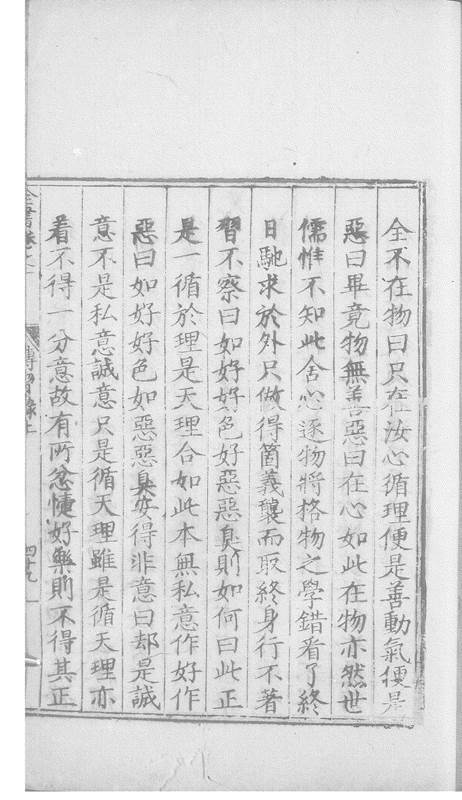 全不在物曰只在汝心循理便是善動氣便是
惡曰畢竟物無善惡曰在心如此在物亦然世
儒惟不知此舍心逐物將格物之學錯看了終
日馳求於外只做得箇義襲而取終身行不著
習不察曰如好好色如惡惡臭則如何曰此正
是一循於理是天理合如此本無私意作好作
惡曰如好好色如惡惡臭安得非意曰却是誠
意不是私意誠意只是循天理雖是循天理亦
着不得一分意故有所忿懥好樂則不得其正
全書卷之一
傳習錄上
四十九